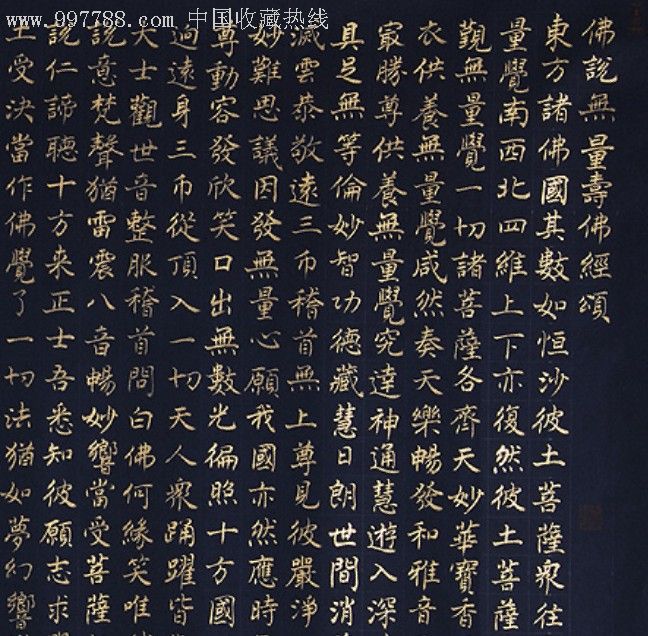 www.997788.com 中国收藏热线
佛說無量壽佛經頌
東方諸佛國其數如恒沙彼土菩薩衆往
量覺南西北四維上下亦復然彼土菩薩
覲無量覺一切諸菩薩各齊天妙華寶香
衣供養無量覺咸然奏天樂暢發和雅音
冣勝尊供養無量覺究達神通慧遊入深
具足無等倫妙智功德藏慧日朗世間消
滅雲恭敬遶三帀稽首無上尊見彼嚴淨
妙難思議因發無量心願我國亦然應時
尊動容發欣笑口出無數光徧照十方國
迴遶身三帀從頂入一切天人衆踊躍皆
大士觀世音整服稽首問白佛何緣笑唯
說意梵聲猶雷震八音暢妙響當受菩薩
說仁諦聽十方来正士吾悉知彼願志求
土受決當作佛覺了一切法猶如夢幻響